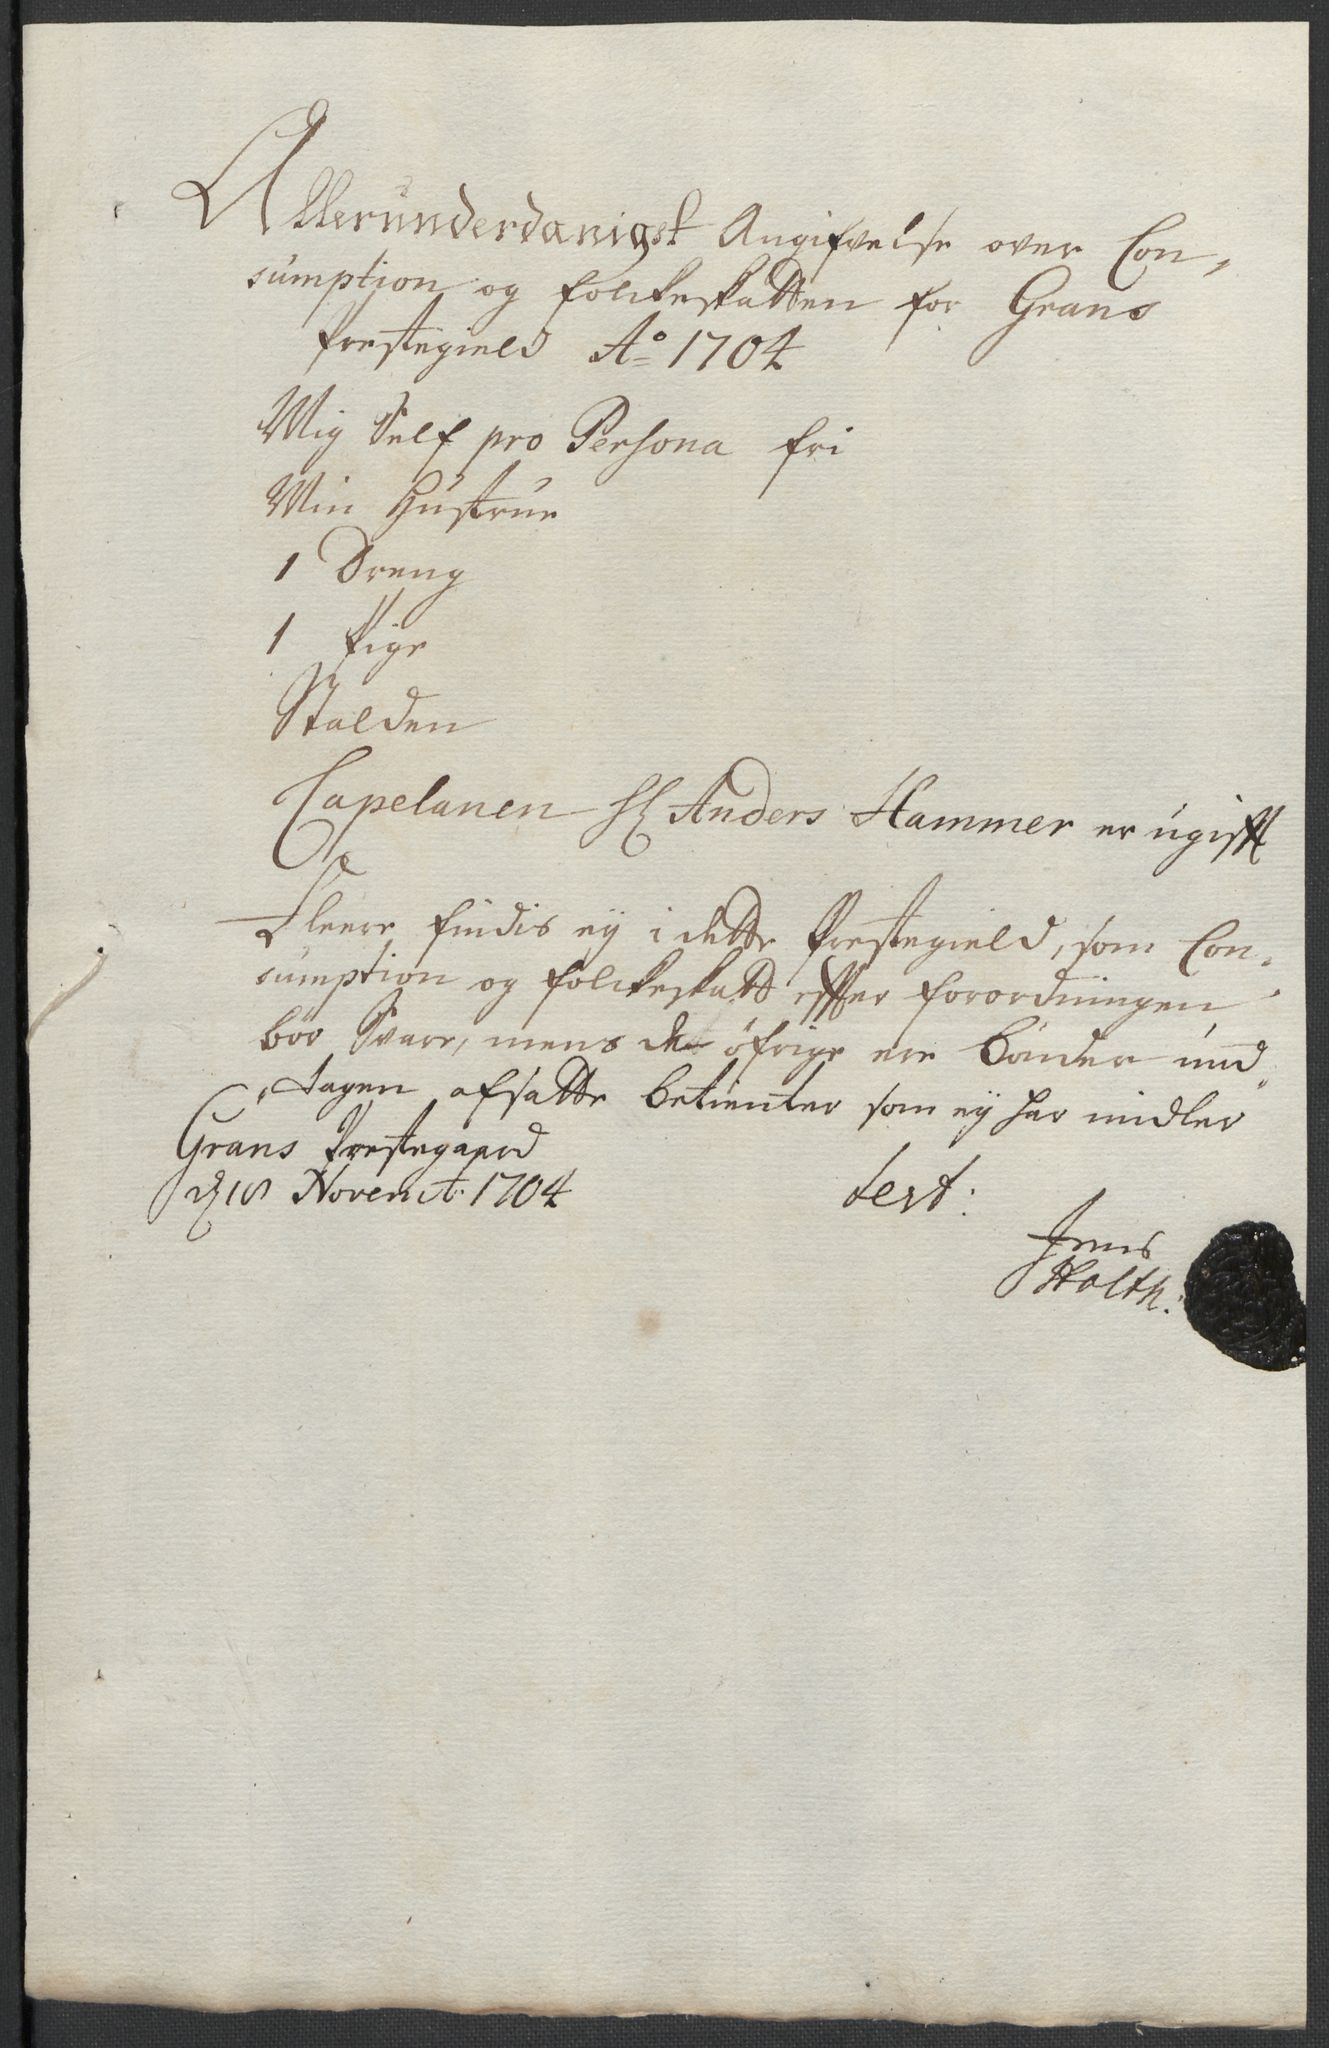 Allerunderdanigst Angifvelse over Con,
sumption og folckeskatten for Grans
Prestegield Ao 1704
Mig Self pro Persona fri
Min Hustrue
1 Dreng
1 Pige
Stalden
Capelanen Hr Anders Hammer er ugifft
Fleere findis ey i dette Prestegield, som Con,
sumption og folckeskatt effter forordningen
bør Svare, mens de øfrige ere bønder und
tagen afsatte betienter som ey har midler
Grans Prestegaard
Novemb: 1704
test:
Jens
Holth: